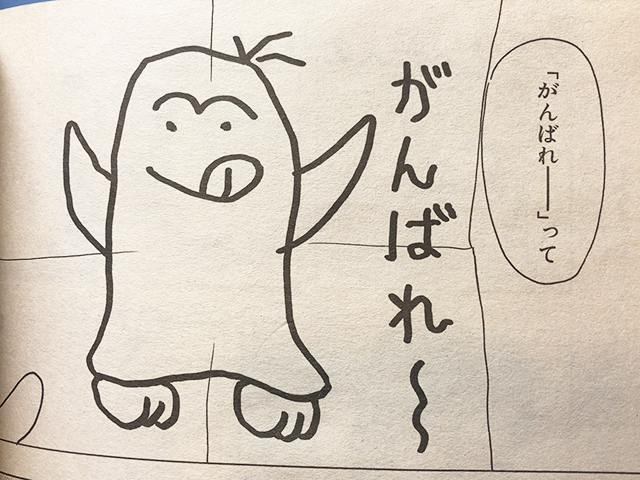 「がんばれ──」って
がんばれ〜